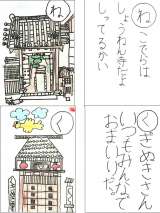 ね
ね ここらは
しょうわな寺だよ
しってるかい
く
くぎぬきさん
いつもみんなで
おまいりだ